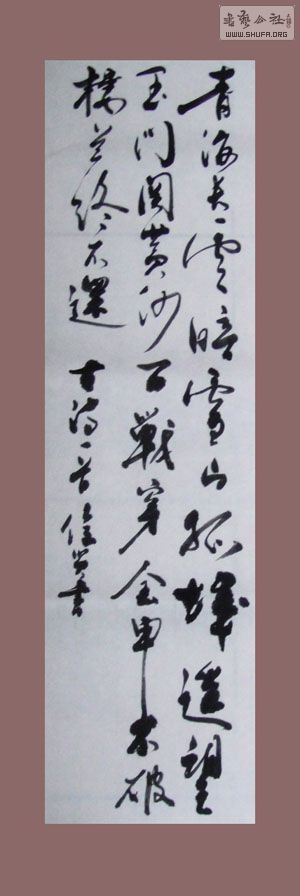 書藝公社
WWW.SHUFA.ORG
青海长雲暗雪山孤城遥望
玉门関黄沙百戰穿金甲不破
楼兰终不還 古诗一首 書